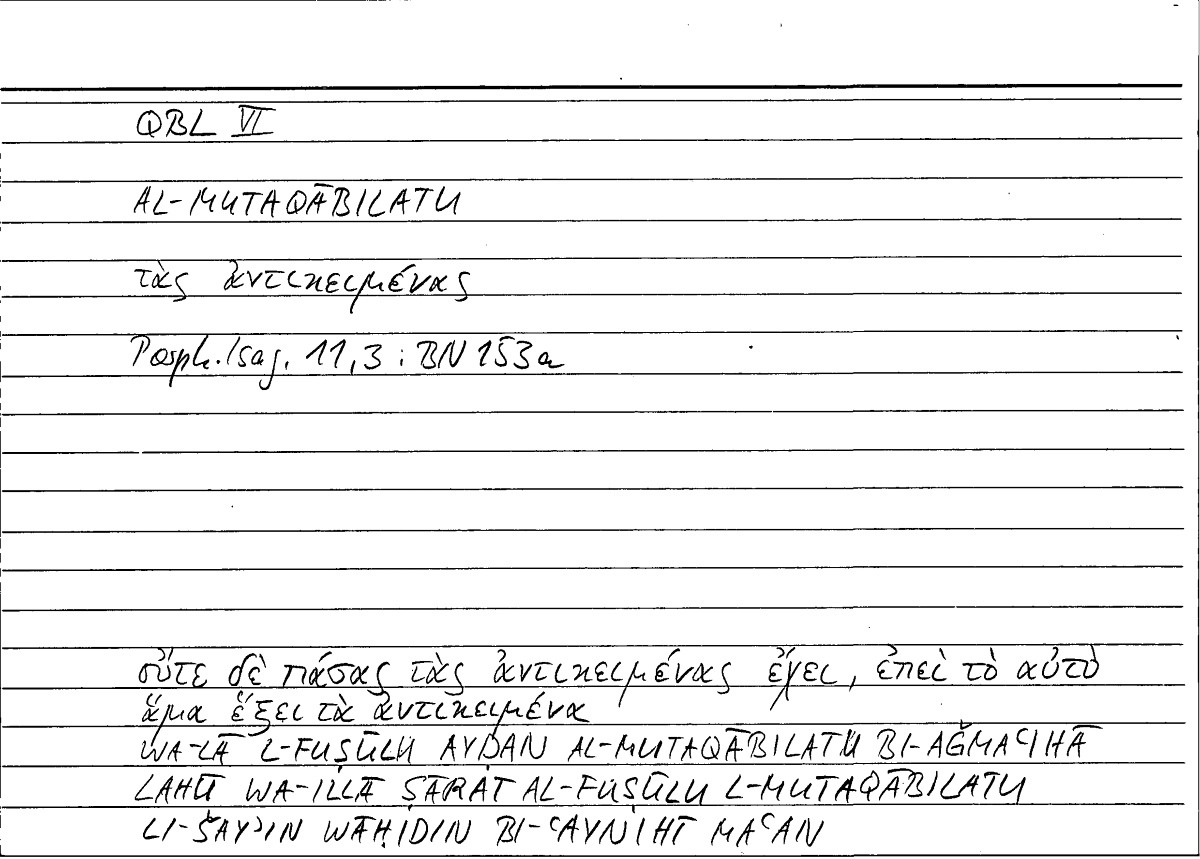 QBL VI
AL-MUTAQĀBILATU
τὰς ἀντικειμένας
Porph. Isag. 11,3 : BN 153a
οὔτε δὲ πάσας τὰς ἀντικειμένας ἔχει, ἐπεὶ τὸ αὐτὸ
ἅμα ἕξει τὰ ἀντικειμένα
WA-LĀ L-FUṢŪLU AYḌAN AL-MUTAQĀBILATU BI-AǦMAʿIHĀ
LAHŪ WA-ILLĀ ṢĀRAT AL-FUṢŪLU L-MUTAQĀBILATU
LI-ŠAYʾIN WĀḤIDIN BI-ʿAYNIHĪ MAʿAN